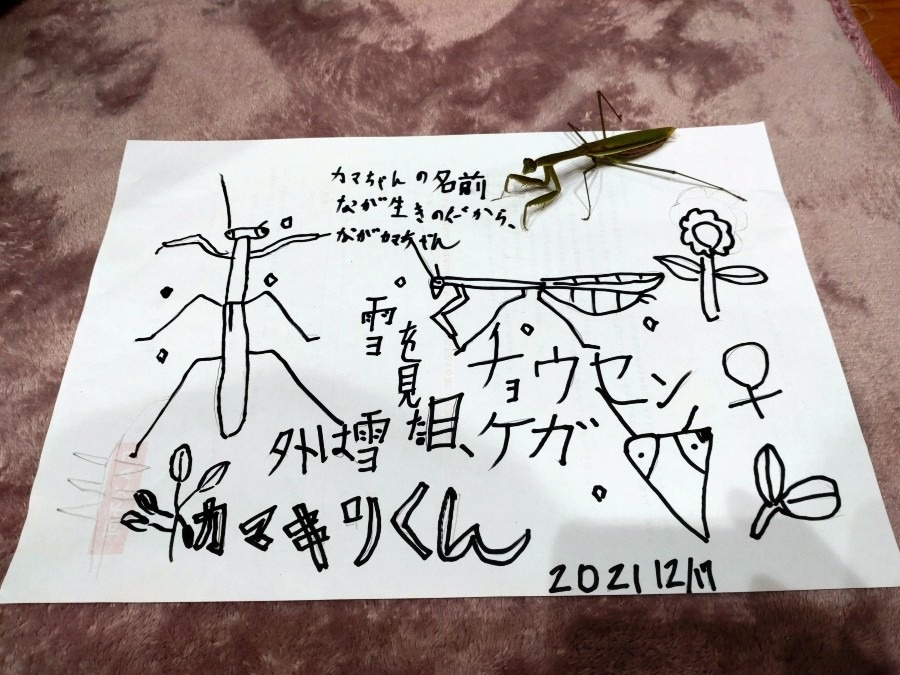 カマちゃんの名前
なが生きのくだから、
ながカマちゃん
雪ヨ
を見た目、
チョウセン
ケガ
♀
外は雪ヨ
カマキリくん
2021 12/17